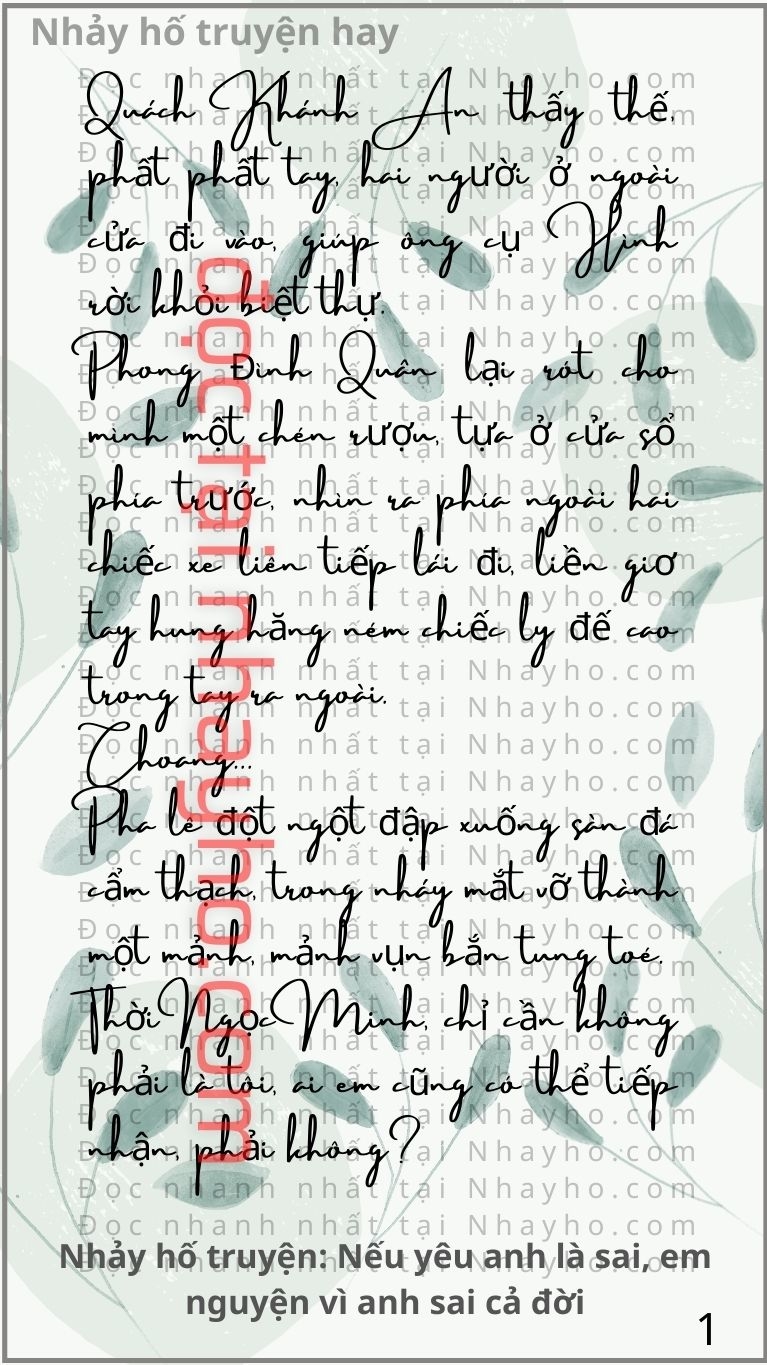 Nhảy hố truyện hay
Quách Khánh An thấy thế,
phất phất tay, hai người ở ngoài
cửa đi vào, giúp ông cụ Hình
rời khỏi biệt thự.
Phong Đình Quân lại rót cho
mình một chén rượu, tựa ở cửa sổ
phía trước, nhìn ra phía ngoài hai
chiếc xe liên tiếp lái đi, liền giơ
tay hung hăng ném chiếc ly đế cao
trong tay ra ngoài.
Choang...
Pha lê đột ngột đập xuống sàn đá
cẩm thạch, trong nháy mắt vỡ thành
một mảnh, mảnh vụn bắn tung toé.
Thời Ngọc Minh, chỉ cần không
phải là tôi, ai em cũng có thể tiếp
nhận, phải không?
đọc tại nhayho.com
Đọc nhanh nhất tại Nhayho.com
Nhảy hố truyện: Nếu yêu anh là sai, em
nguyện vì anh sai cả đời
1